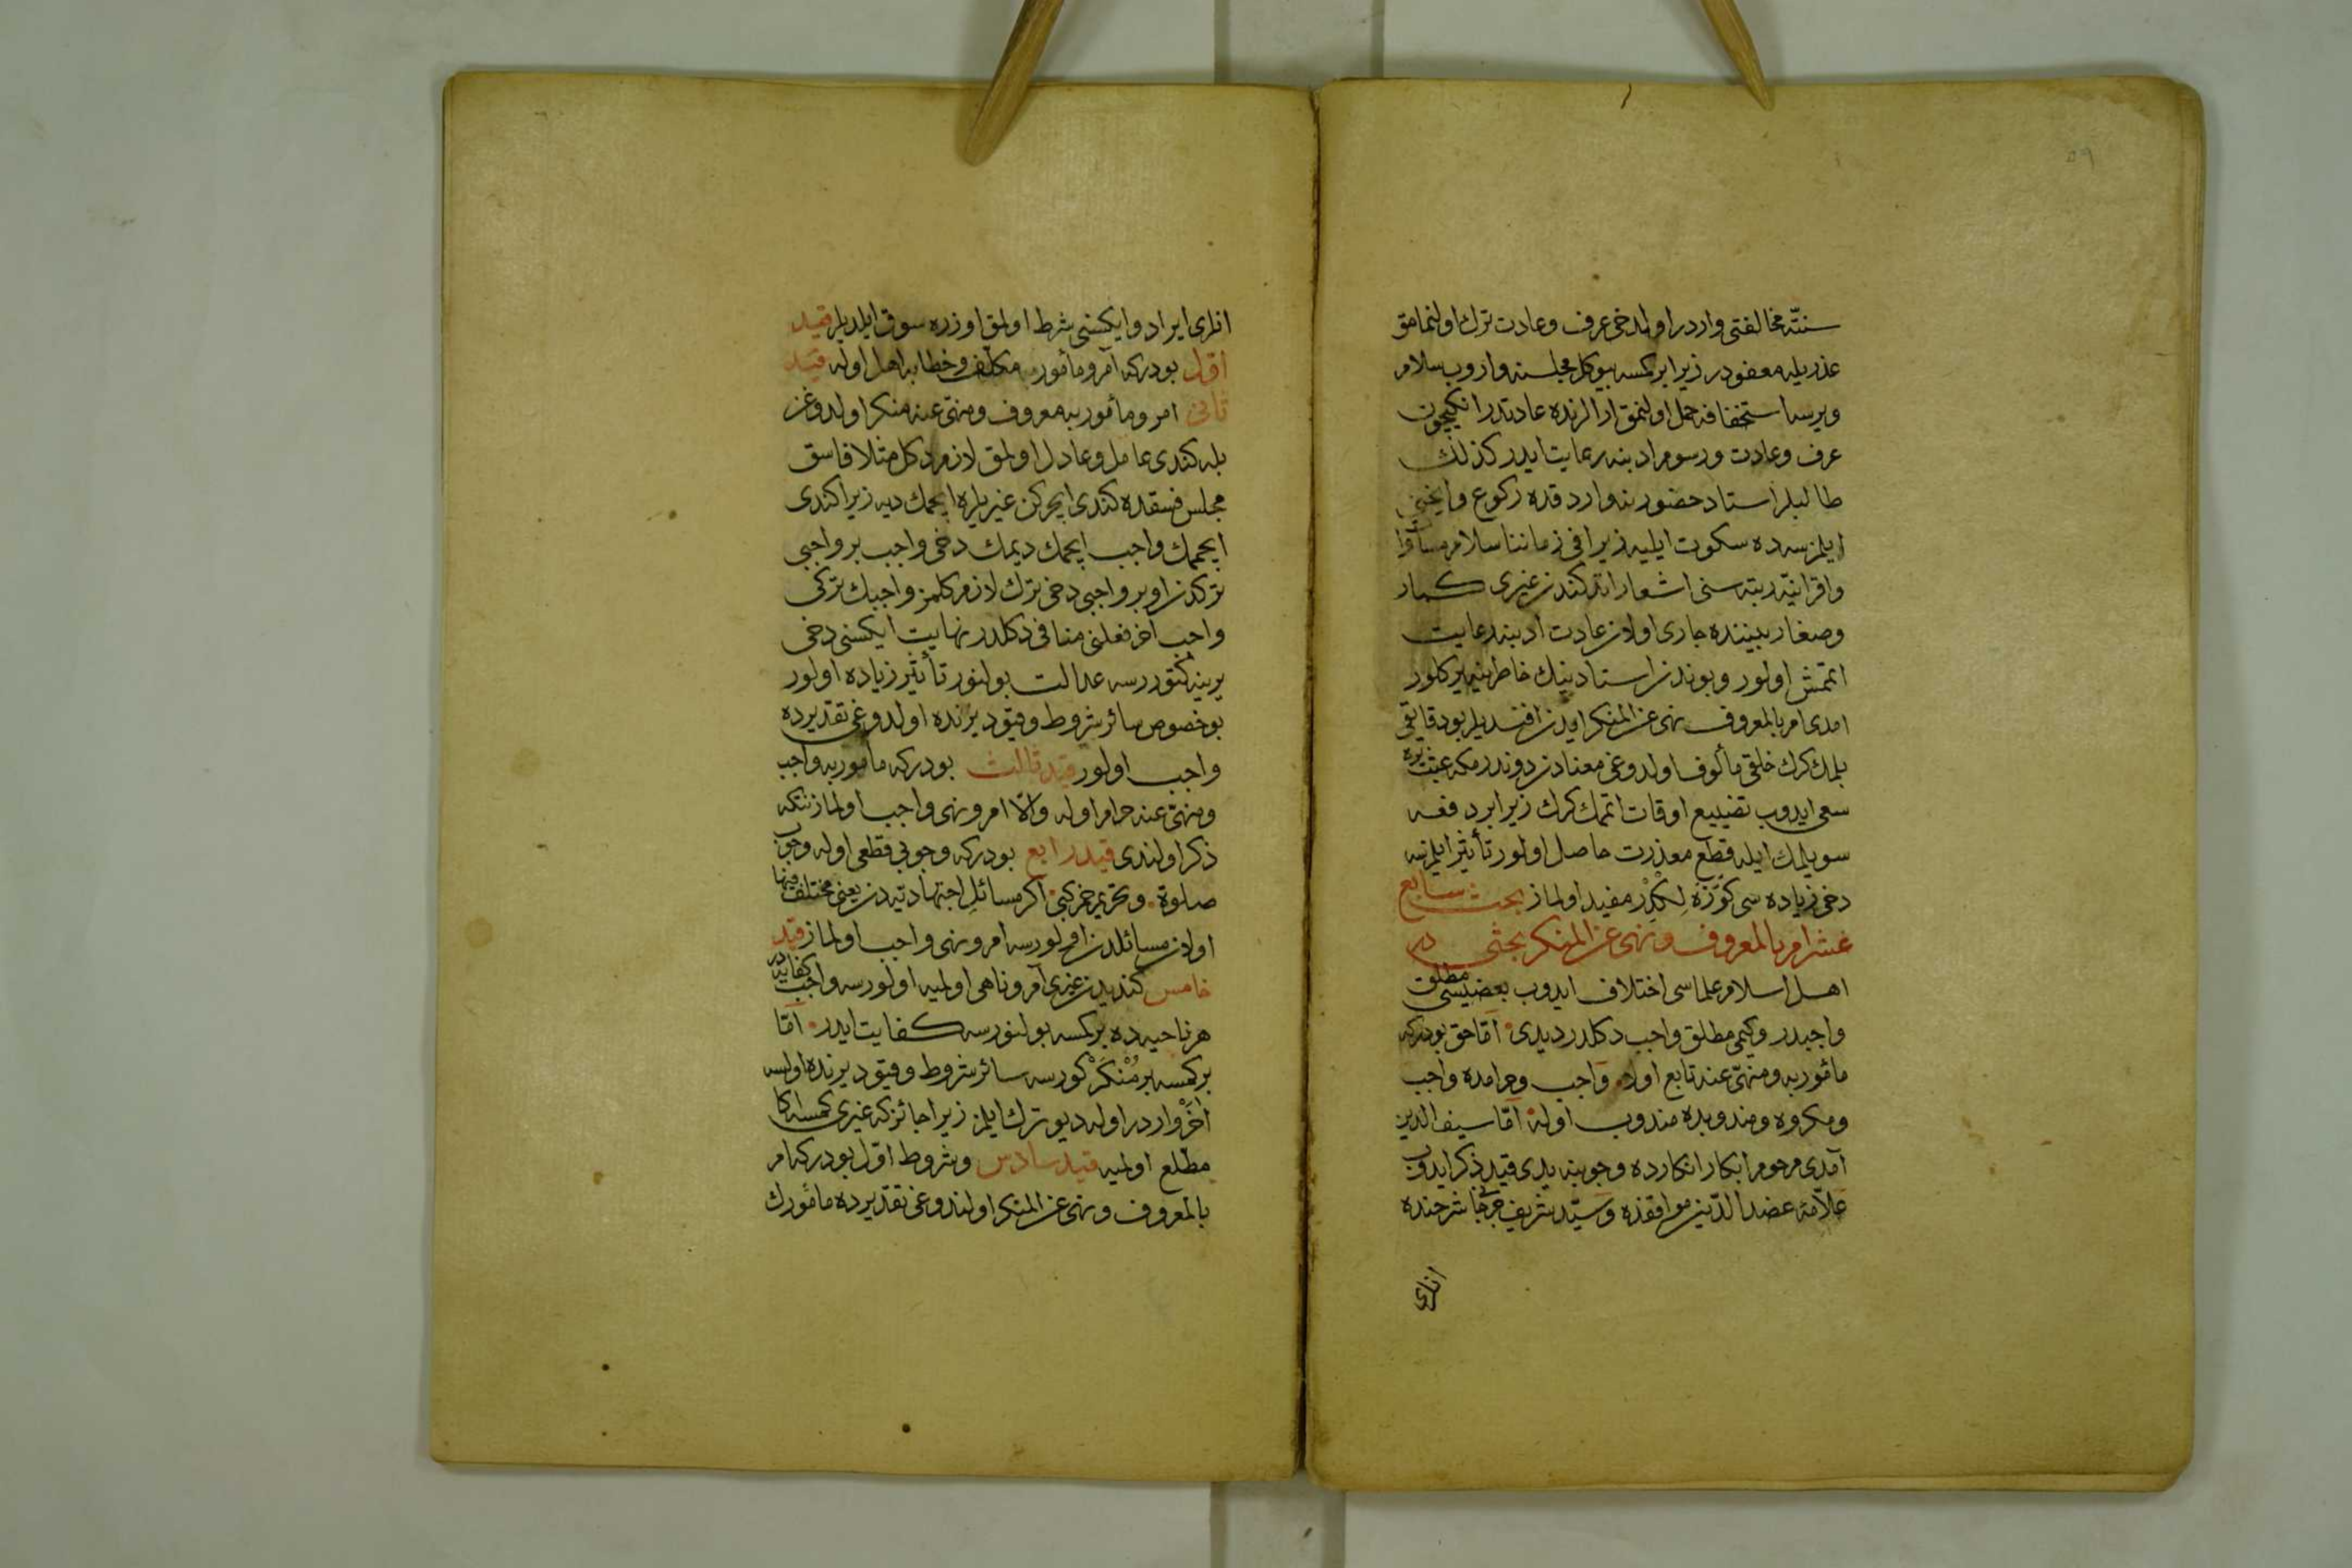 ٥٩
سنته مخالفتی واردر اولدخی عرف وعادت ترك اولنمامق
عذریله معفودر زیرا بر كمسه بیوكلر مجلسنه واروب سلام
ویرسه استخفافه حمل اولنمق ارالرنده عادتدر انكیچون
عرف وعادت ورسوم ادبنه رعایت ایدر كذلك
طالبلر استاد حضورینه واردقده ركوع وانحنی
ایلمزسه ده سكوت ایلیه زیرا فی زماننا سلام مساواة
واقرانیه رتبه سنی اشعار ایدر كندن غیری كبار
وصغار بیننده جاری اولان عادت ادبنه رعایت
اتمش اولور وبوندن استادینك خاطرینه بر كلور
امدی امر بالمعروف نهی عن المنكر ایدن افندیلر بو دقایقی
بلمك كرك خلقی مألوف اولدوغی معتاددن دوندرمكه عبث یره
سعی ایدوب تضییع اوقات اتمك كرك زیرا بر دفعه
سویلمك ایله قطع معذرت حاصل اولور تأثیر ایلمزسه
دخی زیاده سی مفید اولماز بحث سابع
عشر امر بالمعروف ونهی عن المنكر بحثی در
اهل اسلام علماسی اختلاف ایدوب بعضیسی مطلق
واجبدر وكیمی مطلق واجب دكلدر دیدی اما حق بودركه
مأمور به ومنهی عنه تابع اوله واجب وحرامده واجب
ومكروه ومندوبده مندوب اوله اما سیف الدین
آمدی مرحوم ابكار افكارده وجوبنه یدی قید ذكر ایدوب
علامه عضد الدین مواقفده وسید شریف جرجانی شرحنده
انلری
انلری ایراد وایكیسنی شرط اولمق اوزره سوق ایلدیلر قید
اول بودركه آمر ومأمور مكلف وخطابه اهل اوله قید
ثانی امر ومأمور به معروف ومنهی عنه منكر اولدوغن
بله كندی عامل وعادل اولمق لازم دكل مثلا فاسق
مجلس فسقده كندی ایچركن غیریلره ایچمك دیه زیرا كندی
ایچممك واجب ایچمك دیمك دخی واجب بر واجبی
تركدن او بر واجبی دخی ترك لازم كلمز واجبك تركی
واجب آخر فعلنی منافی دكلدر نهایت ایكسنی دخی
یرینه كتوررسه عدالت بولنور تأثیر زیاده اولور
بو خصوص سائر شروط وقیود یرنده اولدوغی تقدیرده
واجب اولور قید ثالث بودركه مأمور به واجب
ومنهی عنه حرام اوله والا امر ونهی واجب اولماز نتكه
ذكر اولندی قید رابع بودركه وجوبی قطعی اوله وجوب
صلوة وتحریم خمر كبی اكر مسائل اجتهادیه دن یعنی مختلف فیها
اولان مسائلدن اولورسه امر ونهی واجب اولماز قید
خامس كندیدن غیری آمر وناهی اولمیه اولورسه واجب كفایه در
هر ناحیه ده بر كمسه بولنورسه كفایت ایدر اما
بر كمسه بر منكر كورسه سائر شروط وقیود یرنده اولسه
آخر واردر اوله دیو ترك ایلمز زیرا جائزكه غیری كمسه اكا
مطلع اولمیه قید سادس وشروط اول بودركه امر
بالمعروف ونهی عن المنكر اولندوغی تقدیرده مأمورك